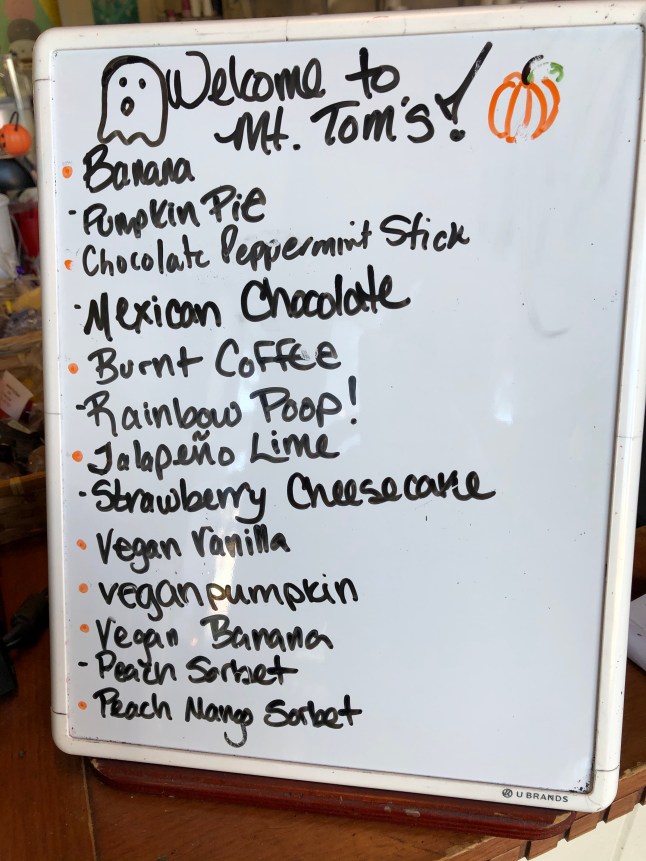 Welcome to
Mt. Tom's!
• Banana
- Pumpkin Pie
• Chocolate Peppermint Stick
- Mexican Chocolate
• Burnt Coffee
- Rainbow Poop!
• Jalapeño Lime
- Strawberry Cheesecake
• Vegan Vanilla
• vegan pumpkin
• Vegan Banana
- Peach Sorbet
• Peach Mango Sorbet
U BRANDS